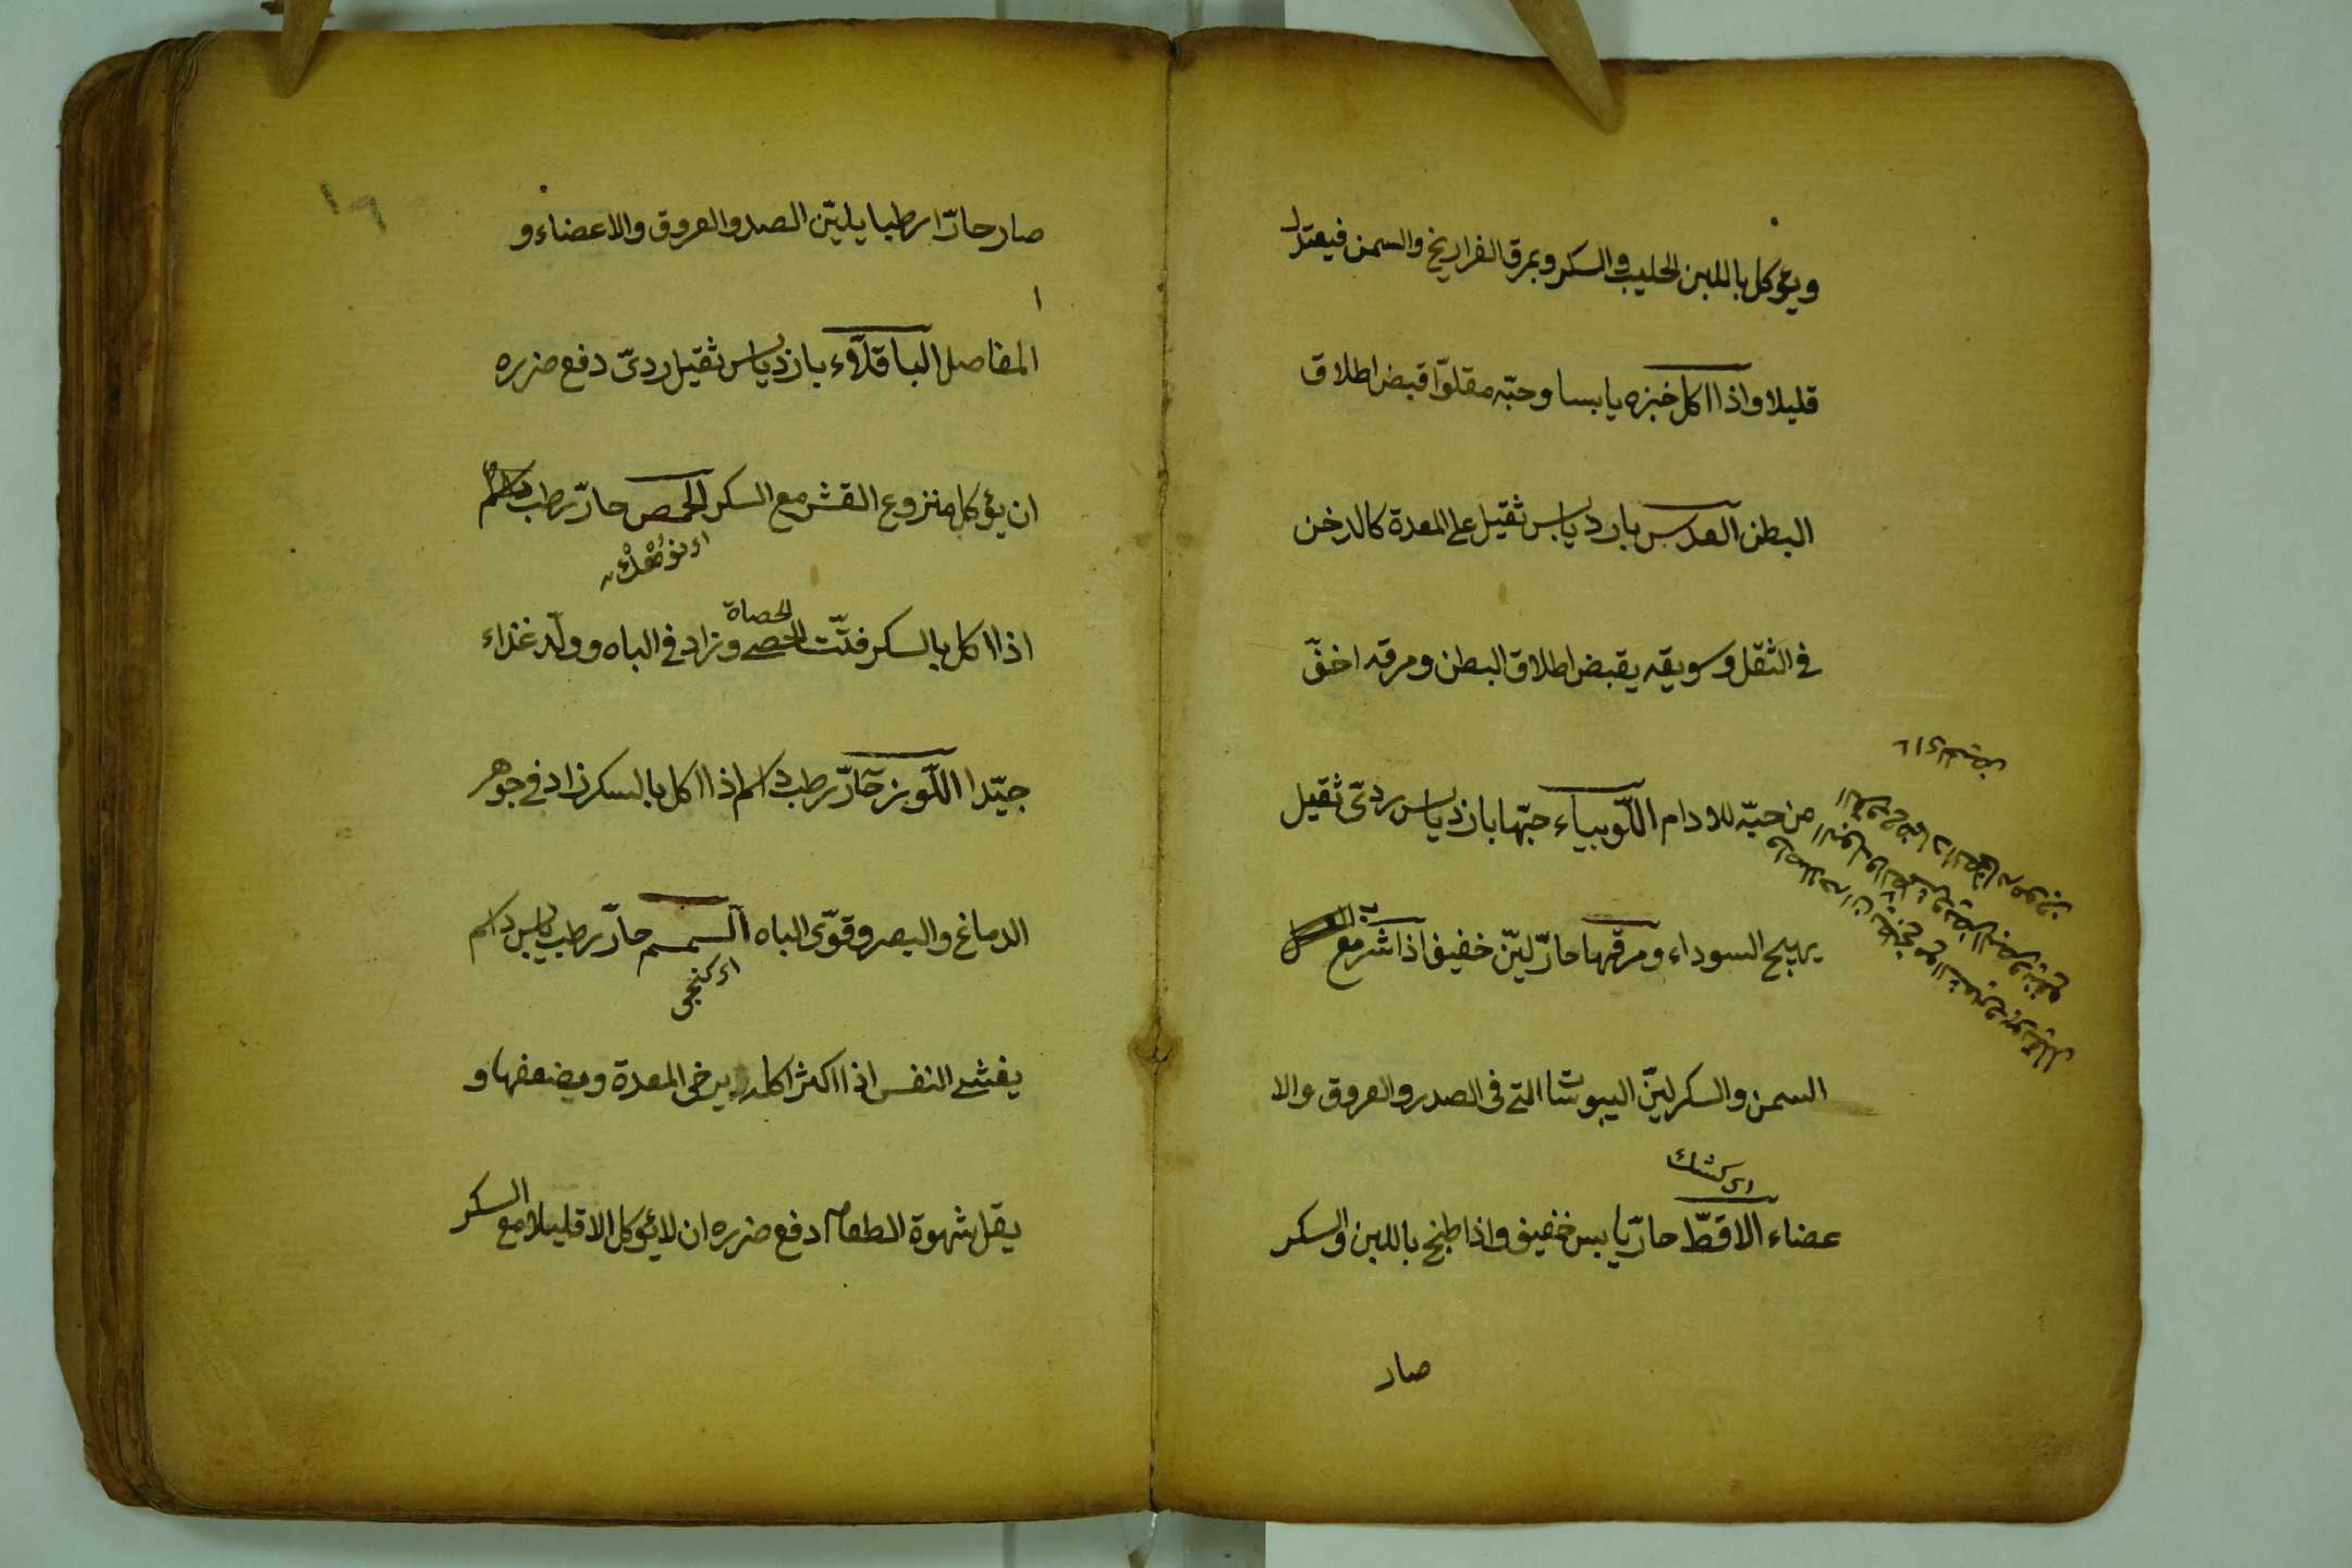 ويؤكل باللبن الحليب والسكر وبمرق الفراريخ والسمن فيعتدل
قليلا واذا اكل خبزه يابسا وحبّه مقلوّا قبض اطلاق
البطن العدس بارد يابس ثقيل على المعدة كالدخن
فى الثقل وسويقه يقبض اطلاق البطن ومرقه اخفّ
من حبّه للاودام اللّوبياء حبّها بارد يابس ردىّ ثقيل
يهيج السوداء ومرقها حارّ ليّن خفيف اذا شرب مع
السمن والسكر ليّن اليبوسات التى فى الصدر والعروق والا
اى كشك
عضاء الاقطّ حارّ يابس خفيف واذا طبخ باللبن والسكر
صار
١٩
صار حارّا رطبا يليّن الصد والعروق والاعضاء و
المفاصل الباقلّاء بارد يابس ثقيل ردىّ دفع ضرره
ان يؤكل منزوع القشر مع السكر الحمص حارّ رطب دسم
الحصاة
اذا اكل بالسكر فتّت الحصى وزاد فى الباه وولّد غذاء
جيّدا اللّوز حارّ رطب دسم اذا اكل بالسكر زاد فى جوهر
الدماغ والبصر وقوّى الباه السمسم حارّ رطب يابس دسم
اى كنجى
يغشى النفس اذا اكثر اكله يرخى المعدة ويضعفها و
يقل شهوة الطعام دفع ضرره ان لا يؤكل الا قليلا مع السكر